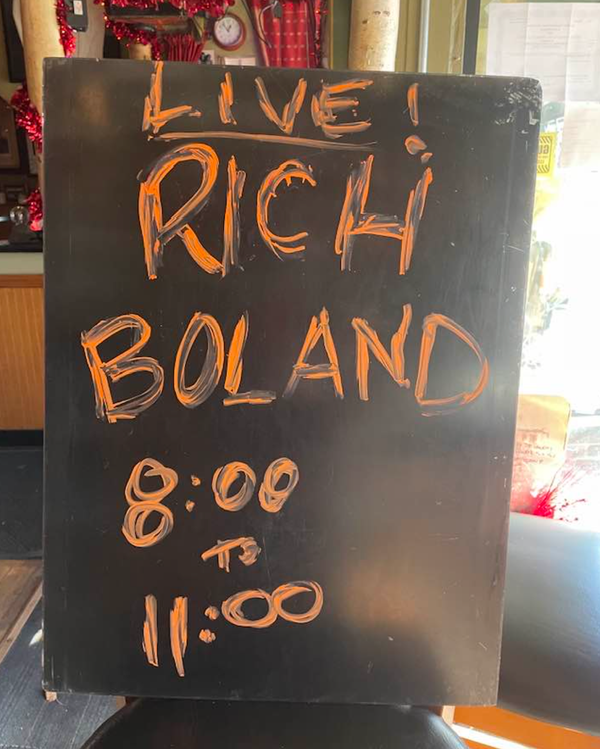 LIVE!
RICH
BOLAND
8:00
TO
11:00